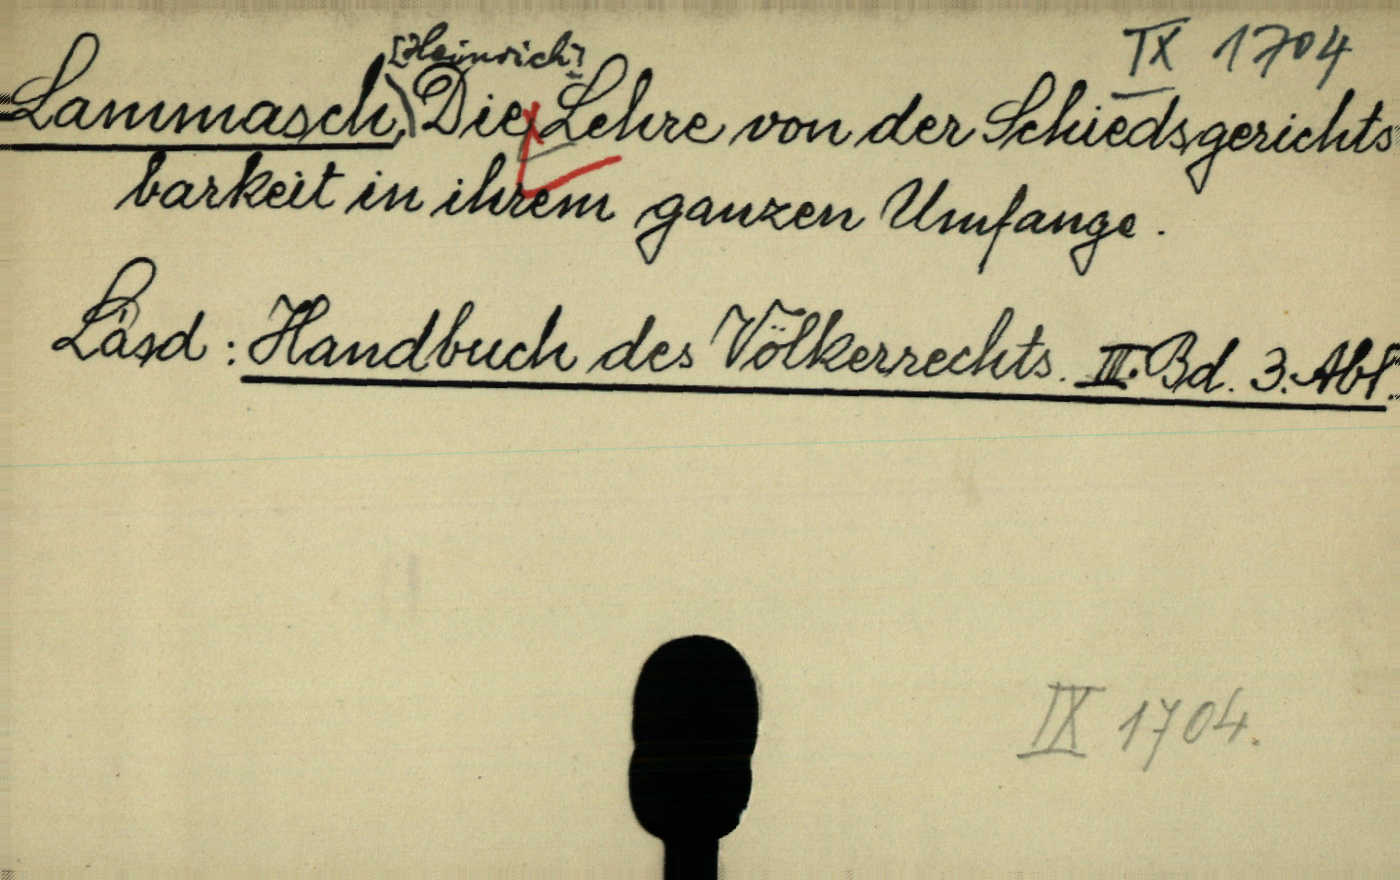 [Heinrich] IX 1704
Lammasch, Die Lehre von der Schiedsgerichts
barkeit in ihrem ganzen Umfange.
Lásd: Handbuch des Völkerrechts. III. Bd. 3. Abt.
IX 1704.